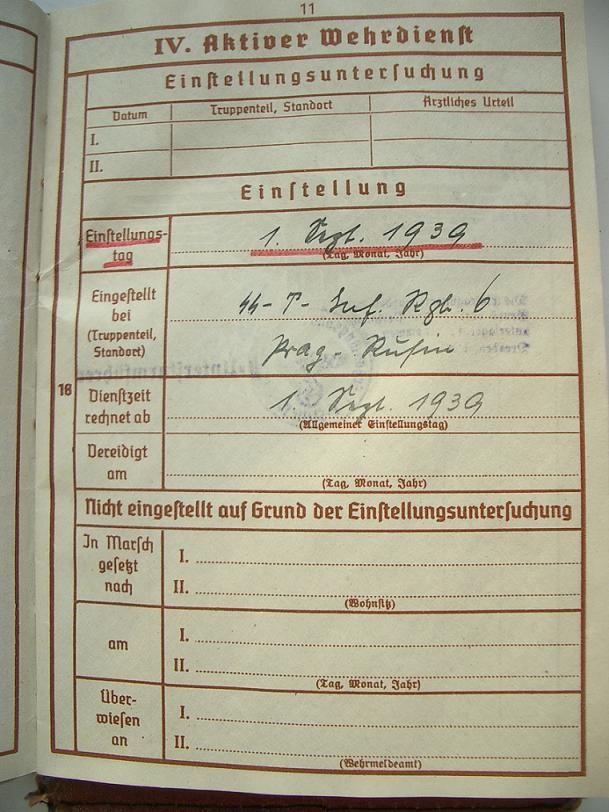 11
IV. Aktiver Wehrdienst
Einstellungsuntersuchung
Datum Truppenteil, Standort Ärztliches Urteil
I.
II.
Einstellung
Einstellungs-
tag
1. Sept. 1939
(Tag, Monat, Jahr)
Eingestellt
bei
(Truppenteil,
Standort)
SS-T- Inf. Rgt. 6
Prag - Rusin
16
Dienstzeit
rechnet ab
1. Sept. 1939
(Allgemeiner Einstellungstag)
Vereidigt
am
(Tag, Monat, Jahr)
Nicht eingestellt auf Grund der Einstellungsuntersuchung
In Marsch
gesetzt
nach
I.
II.
(Wohnsitz)
am
I.
II.
(Tag, Monat, Jahr)
Über-
wiesen
an
I.
II.
(Wehrmeldeamt)